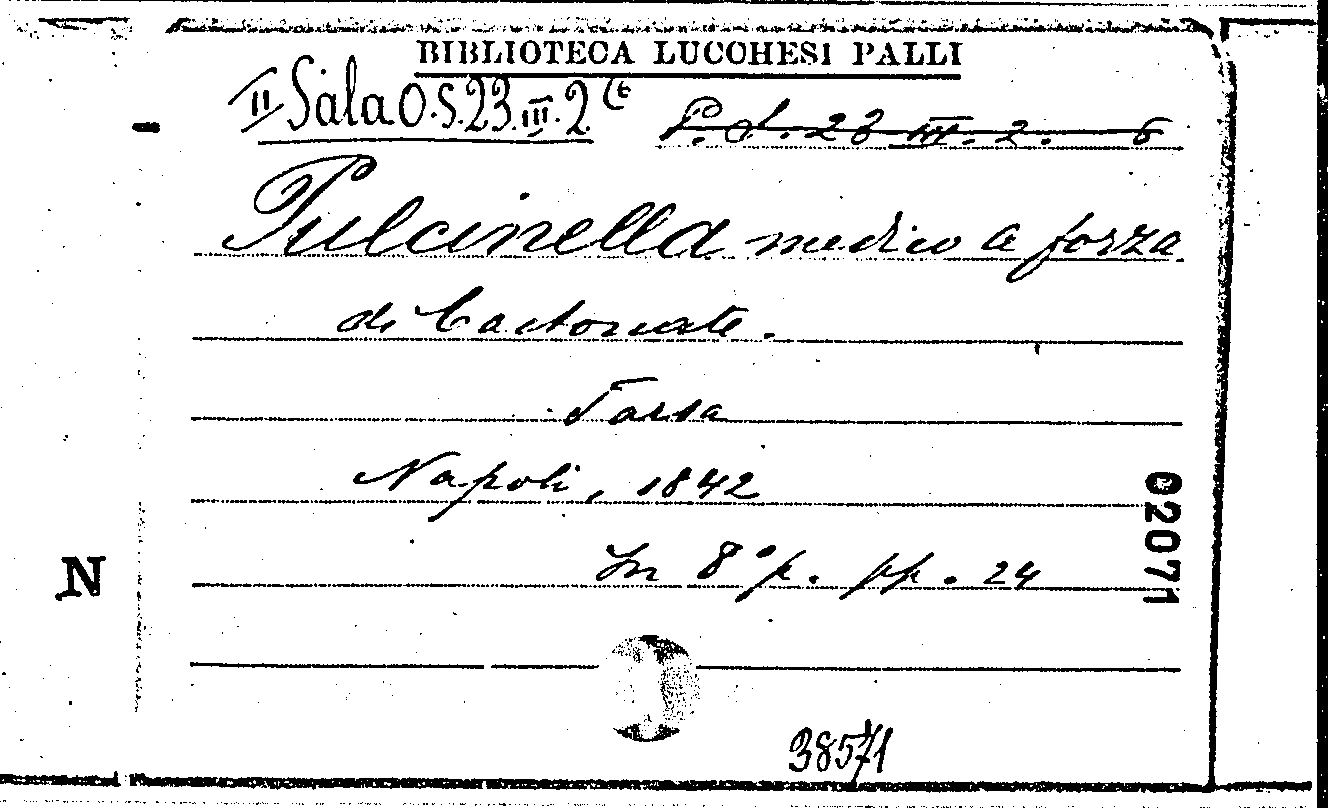 BIBLIOTECA LUCCHESI PALLI
II Sala O.S.23.III.2
P. S. 23 III. 2. 6
Pulcinella medico a forza
di bastonate.
Farsa
Napoli, 1842
In 8° p. pp. 24
02071
N
38571